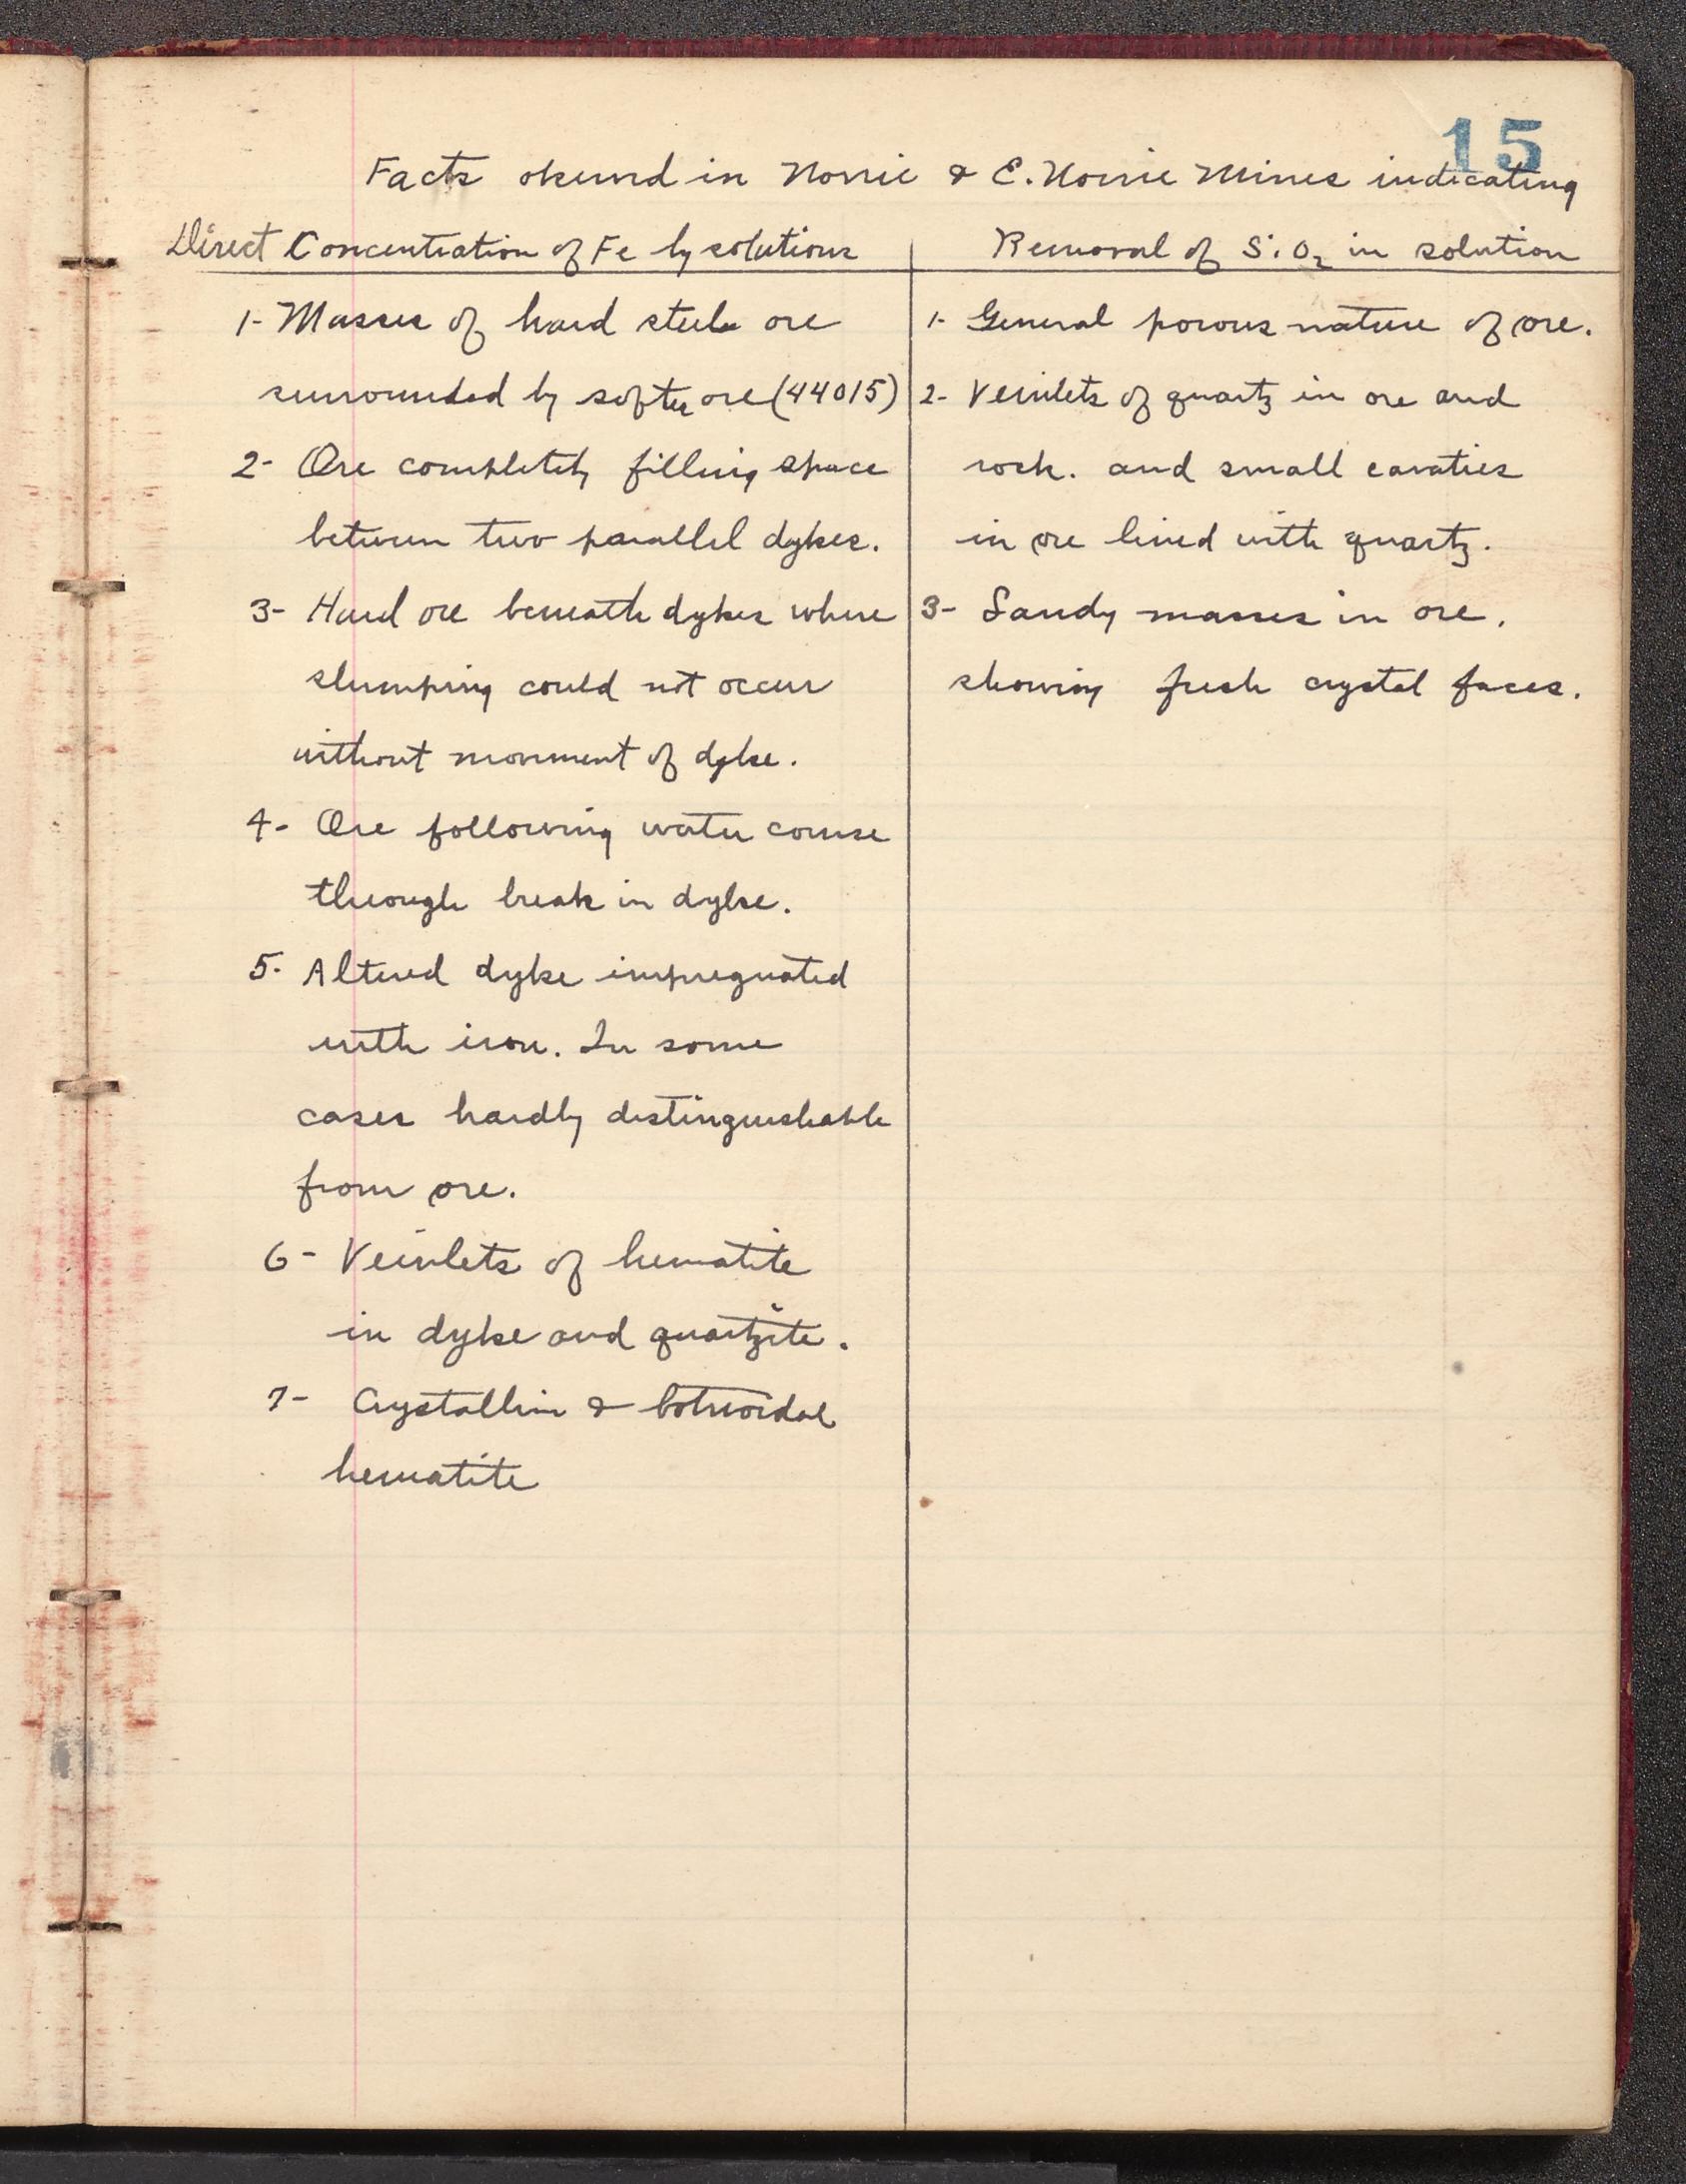 15
Facts observed in Norrie & E. Norrie Mines indicating
Direct Concentration of Fe by solutions
1- Masses of hard steel ore
surrounded by softer ore (44015)
2- Ore completely filling space
between two parallel dykes.
3- Hard ore beneath dykes where
slumping could not occur
without movement of dyke.
4- Ore following water course
through break in dyke.
5- Altered dyke impregnated
with iron. In some
cases hardly distinguishable
from ore.
6- Veinlets of hematite
in dyke and quartzite.
7- Crystallin & botrioidal
hematite
Removal of SiO₂ in solution
1- General porous nature of ore.
2- Veinlets of quartz in ore and
rock. and small cavaties
in ore lined with quartz.
3- Sandy masses in ore.
showing fresh crystal faces.